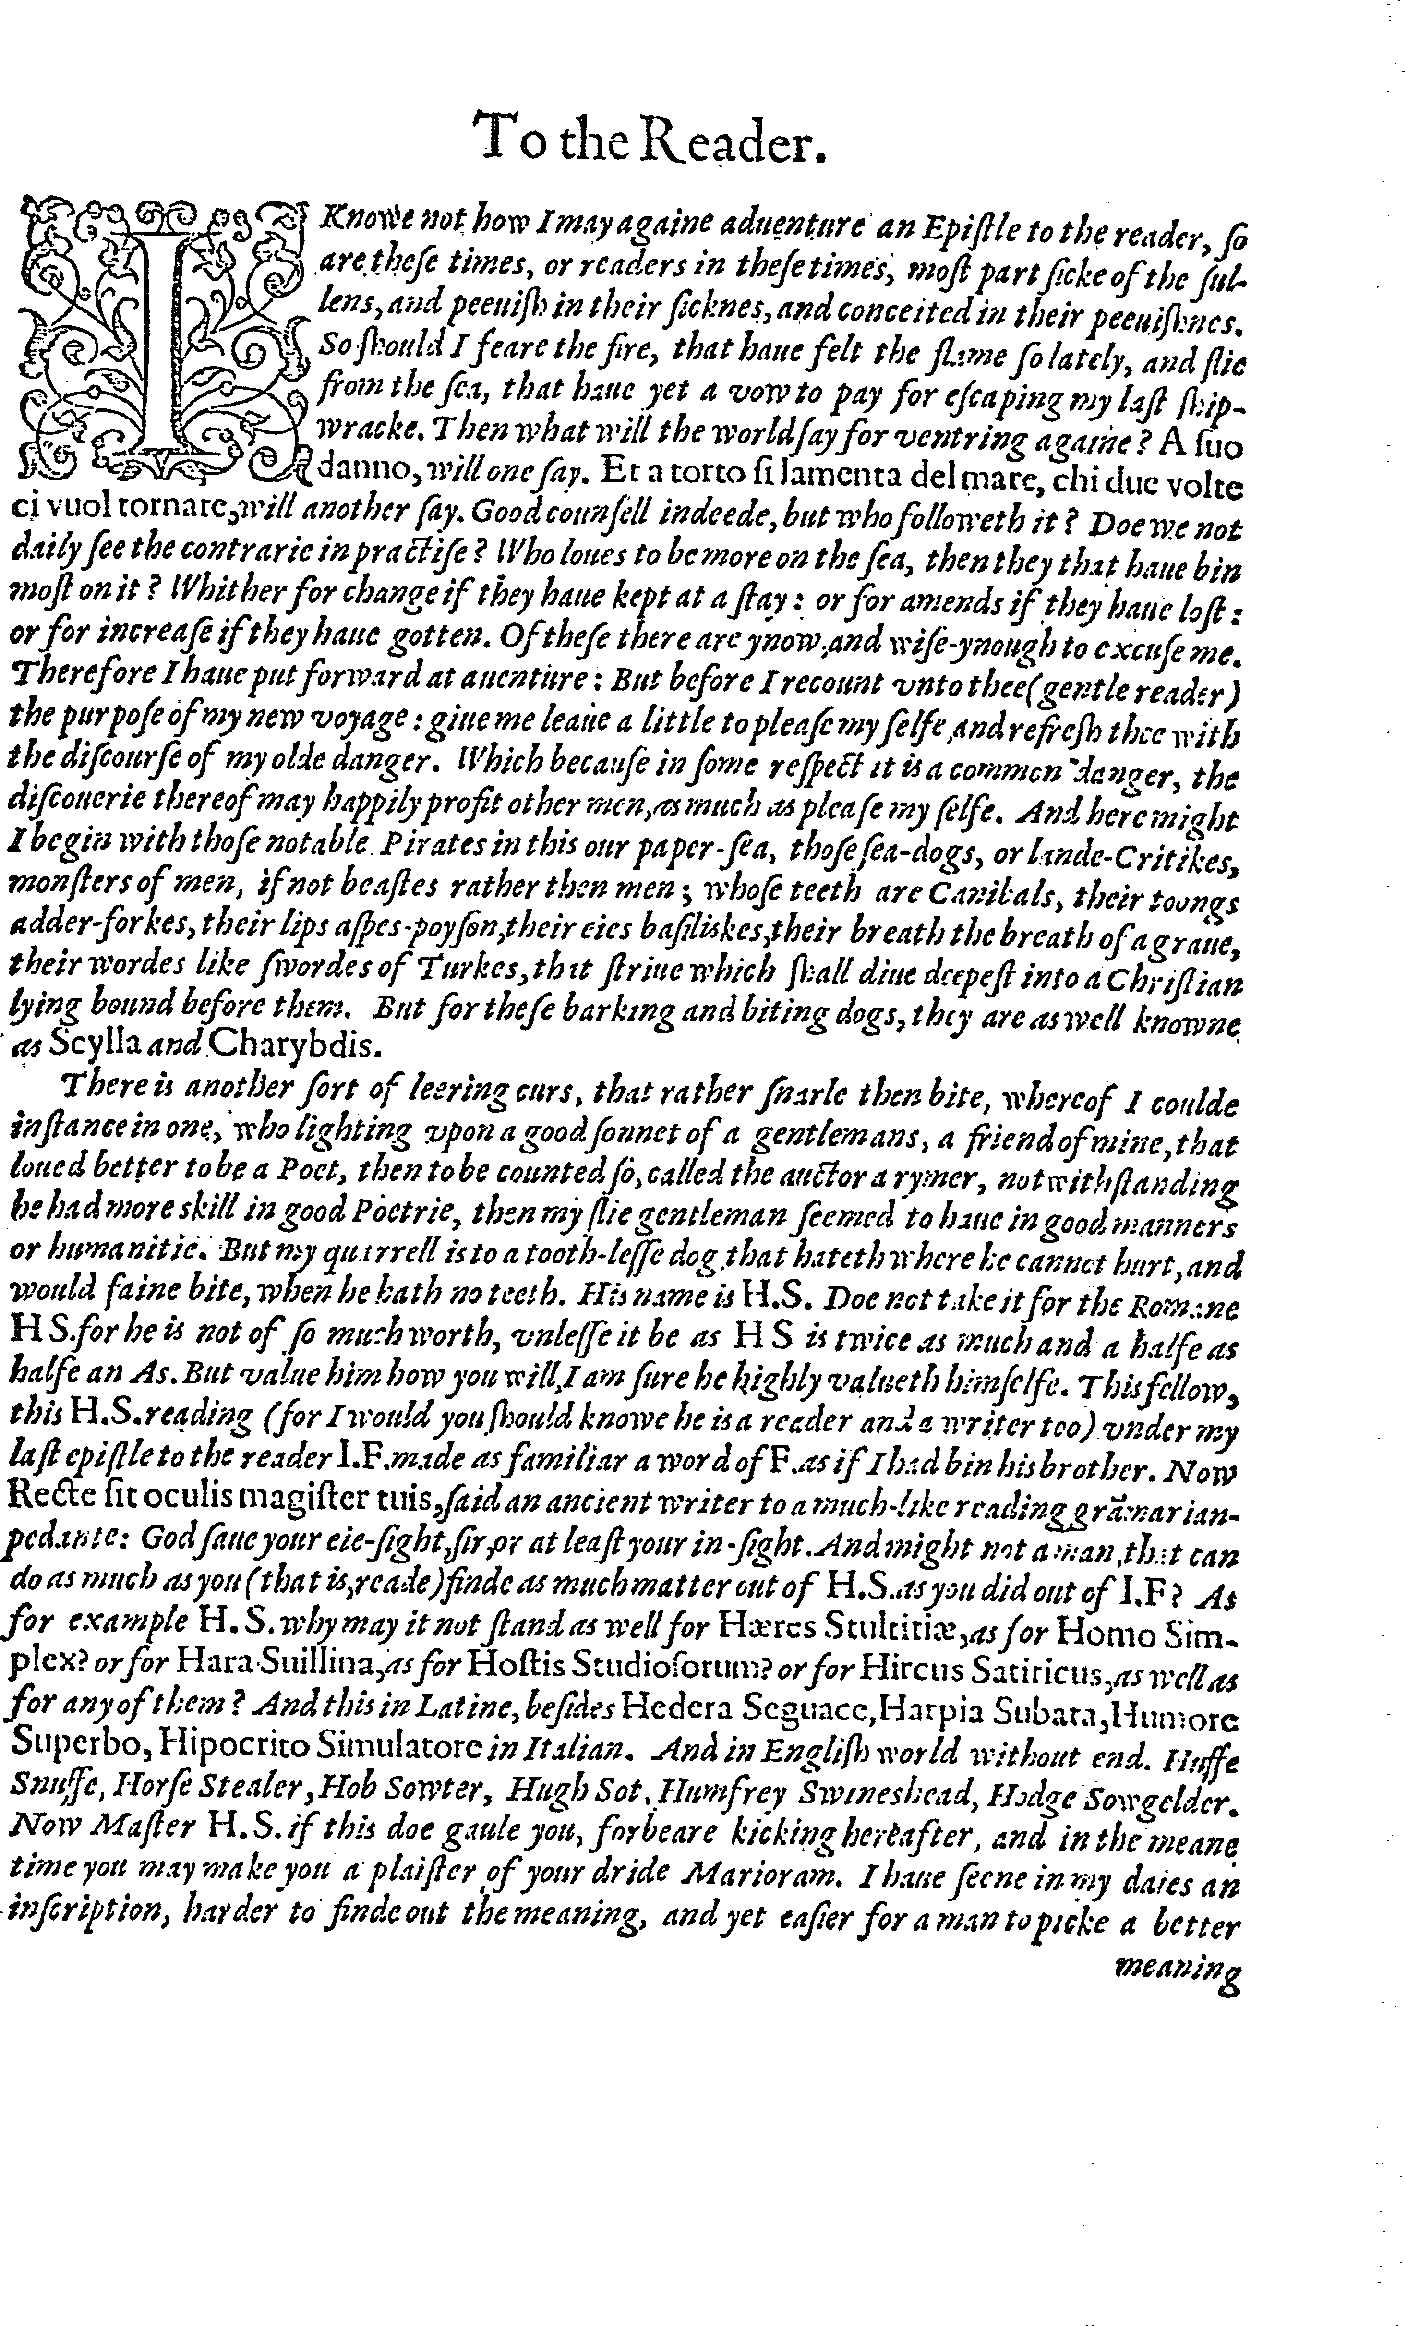 To the Reader.
I Knowe not how I may againe aduenture an Epiſtle to the reader, ſo
are theſe times, or readers in theſe times, moſt part ſicke of the ſul-
lens, and peeuiſh in their ſicknes, and conceited in their peeuiſhnes.
So ſhould I feare the fire, that haue felt the flame ſo lately, and flie
from the ſea, that haue yet a vow to pay for eſcaping my laſt ſhip-
wracke. Then what will the world ſay for ventring againe? A ſuo
danno, will one ſay. Et a torto ſi lamenta del mare, chi due volte
ci vuol tornare, will another ſay. Good counſell indeede, but who followeth it? Doe we not
daily ſee the contrarie in practiſe? Who loues to be more on the ſea, then they that haue bin
moſt on it? Whither for change if they haue kept at a ſtay: or for amends if they haue loſt:
or for increaſe if they haue gotten. Of theſe there are ynow, and wiſe-ynough to excuſe me.
Therefore I haue put forward at auenture: But before I recount vnto thee (gentle reader)
the purpoſe of my new voyage: giue me leaue a little to pleaſe my ſelfe, and refreſh thee with
the diſcourſe of my olde danger. Which becauſe in ſome reſpect it is a common danger, the
diſcouerie thereof may happily profit other men, as much as pleaſe my ſelfe. And here might
I begin with thoſe notable Pirates in this our paper-ſea, thoſe ſea-dogs, or lande-Critikes,
monſters of men, if not beaſtes rather then men; whoſe teeth are Canibals, their toongs
adder-forkes, their lips aſpes-poyſon, their eies baſiliskes, their breath the breath of a graue,
their wordes like ſwordes of Turkes, that ſtriue which ſhall diue deepeſt into a Chriſtian
lying bound before them. But for theſe barking and biting dogs, they are as well knowne
as Scylla and Charybdis.
There is another ſort of leering curs, that rather ſnarle then bite, whereof I coulde
inſtance in one, who lighting vpon a good ſonnet of a gentlemans, a friend of mine, that
loued better to be a Poet, then to be counted ſo, called the auctor a rymer, notwithſtanding
he had more skill in good Poetrie, then my ſlie gentleman ſeemed to haue in good manners
or humanitie. But my quarrell is to a tooth-leſſe dog, that hateth where he cannot hurt, and
would faine bite, when he hath no teeth. His name is H.S. Doe not take it for the Romane
H S. for he is not of ſo much worth, vnleſſe it be as H S is twice as much and a halfe as
halfe an As. But value him how you will, I am ſure he highly valueth himſelfe. This fellow,
this H.S. reading (for I would you ſhould knowe he is a reader and a writer too) vnder my
laſt epiſtle to the reader I.F. made as familiar a word of F. as if I had bin his brother. Now
Recte ſit oculis magiſter tuis, ſaid an ancient writer to a much-like reading grãmarian-
pedante: God ſaue your eie-ſight, ſir, or at leaſt your in-ſight. And might not a man, that can
do as much as you (that is, reade) finde as much matter out of H.S. as you did out of I.F? As
for example H.S. why may it not ſtand as well for Hæres Stultitiæ, as for Homo Sim-
plex? or for Hara Suillina, as for Hoſtis Studioſorum? or for Hircus Satiricus, as well as
for any of them? And this in Latine, beſides Hedera Seguace, Harpia Subata, Humore
Superbo, Hipocrito Simulatore in Italian. And in Engliſh world without end. Huffe
Snuffe, Horſe Stealer, Hob Sowter, Hugh Sot, Humfrey Swineshead, Hodge Sowgelder.
Now Maſter H.S. if this doe gaule you, forbeare kicking hereafter, and in the meane
time you may make you a plaiſter of your dride Marioram. I haue ſeene in my daies an
inſcription, harder to finde out the meaning, and yet eaſier for a man to picke a better
meaning